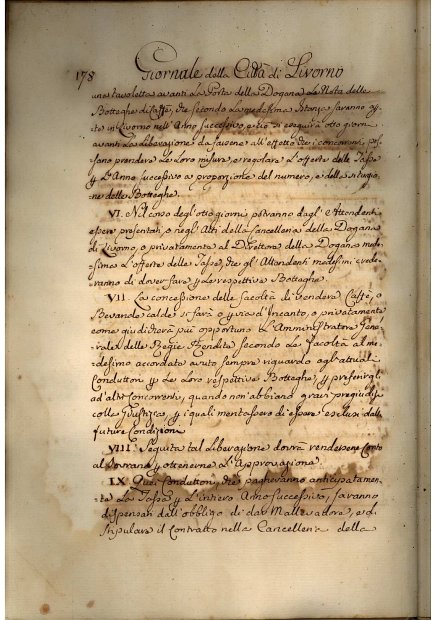 178 Giornale della Città di Livorno
una tavoletta avanti La Porta della Dogana La Nota delle
Botteghe di Caffè, che secondo La medesima saranno
in Livorno nell'Anno successivo, e ciò si eseguirà otto giorni
avanti La Liberazione da farsene all'effetto che i concorrenti pos-
sano prendere Le Loro misure, e regolare L'offerte delle Tasse
L'Anno successivo a proporzione del numero, e della situazio-
ne delle Botteghe.
VI. Nel corso degl'otto giorni potranno dagl'Attendenti
essere presentati, o negl'Atti della Cancelleria della Dogana
di Livorno, o privatamente al Direttore della Dogana mede-
simo L'offerte delle Tasse, che gl'Attendenti medesimi crede-
ranno di dover fare le respettive Botteghe.
VII. La concessione delle facoltà di vendere Caffè, o
Bevande calde si farà o via d'Incanto, o privatamente
come giudicherà più opportuno L'Amministratore Gene-
rale delle Regie Rendite secondo La facoltà al me-
desimo accordata avuto sempre riguardo agl'attuali
Conduttori Le Loro respettive Botteghe, preferirgli
ad'altri Concorrenti, quando non abbiano gravi pregiudizj
colla Giustizia, quali meritassero di essere esclusi dalle
future Condizioni
VIII. Seguita tal Liberazione dovrà rendersene Conto
al Sovrano, e ottenerne L'Approvazione.
IX. Quei Conduttori, che pagheranno anticipatamen-
te La Tassa L'intiero Anno successivo, saranno
dispensati dall'obbligo di dar Mallevadore, e di
stipulare il Contratto nella Cancelleria della